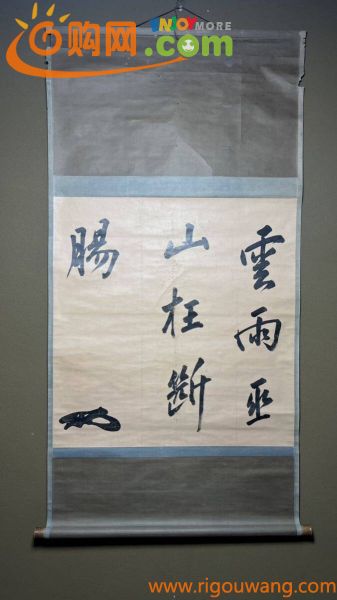 e购网
ENJOYMORE
.com
雲雨巫
山枉斷
腸
www.rigouwang.com